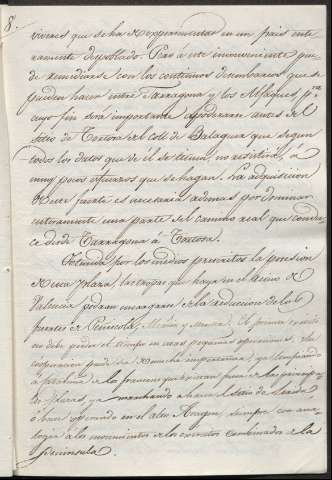 8.
viveres que se ha de esperimentar en un pais ente-
ramente despoblado. Pero á este inconveniente pue-
de remediarse con los continuos desembarcos que se
pueden hacer entre Tarragona y los Alfaques, pᵃ
cuyo fin será importante apoderarse antes del
sitio de Tortosa del Coll de Balaguer que segun
todos los datos que de él se tienen, no resistirá á
muy pocos esfuerzos que se hagan. La adquisicion
de este fuerte es necesaria ademas por dominar
enteramente una parte del camino real que condu-
ce desde Tarragona á Tortosa.
Obtenida por los medios prescritos la posesion
de esta plaza, las tropas que haya en el Reino de
Valencia podran encargarse de la reduccion de los
fuertes de Peñiscola, Morella y Murviedro. El primer exercito
no debe perder el tiempo en unas pequeñas operaciones. Su
cooperacion puede ser de mucha importancia, ya
á los franceses que
plazas, ya marchando á hacer el sitio de Lerida
ó bien operando en el alto Aragon, siempre con ana-
logia á los movimientos de los exercitos combinados de la
Peninsula.